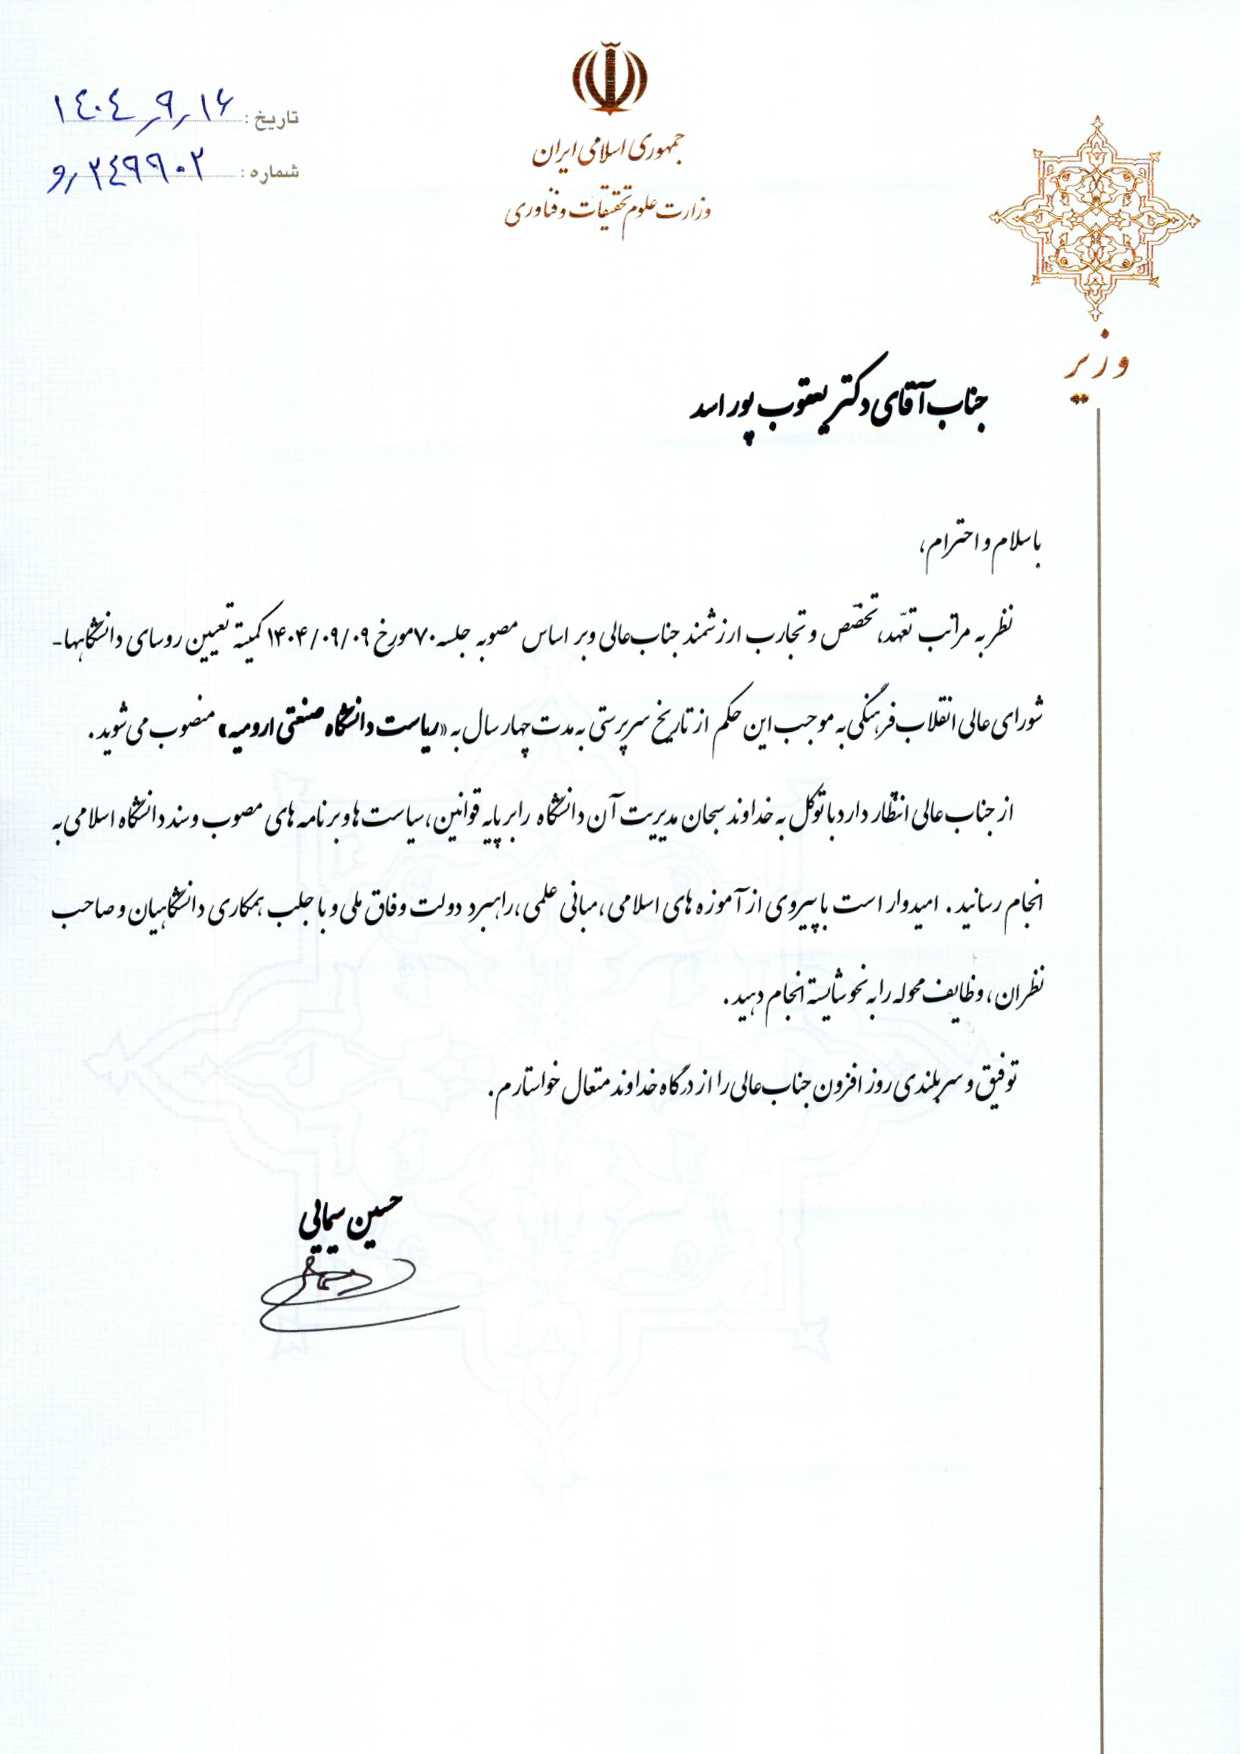 جمهوری اسلامی ایران
وزارت علوم تحقیقات و فناوری
تاریخ: ۱۴۰۴/۹/۱۶
شماره: ۲۴۹۹۰۲/و
وزیر
جناب آقای دکتر یعقوب پور اسد
با سلام و احترام،
نظر به مراتب تعهد، تخصص و تجارب ارزشمند جناب‌عالی و بر اساس مصوبه جلسه ۷۰ مورخ ۱۴۰۴/۰۹/۰۹ کمیته تعیین روسای دانشگاهها-
شورای عالی انقلاب فرهنگی به موجب این حکم از تاریخ سرپرستی به مدت چهار سال به «ریاست دانشگاه صنعتی ارومیه» منصوب می‌شوید.
از جناب عالی انتظار دارد با توکل به خداوند سبحان مدیریت آن دانشگاه را بر پایه قوانین، سیاست ها و برنامه های مصوب و سند دانشگاه اسلامی به
انجام رسانید. امیدوار است با پیروی از آموزه های اسلامی، مبانی علمی، راهبرد دولت وفاق ملی و با جلب همکاری دانشگاهیان و صاحب
نظران، وظایف محوله را به نحو شایسته انجام دهید.
توفیق و سربلندی روز افزون جناب‌عالی را از درگاه خداوند متعال خواستارم.
حسین سیمایی